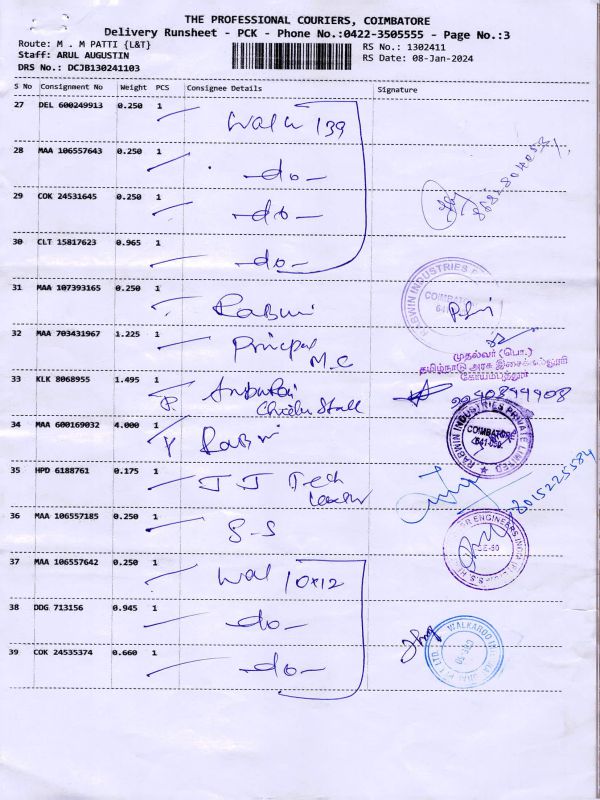 THE PROFESSIONAL COURIERS, COIMBATORE
Delivery Runsheet - PCK - Phone No.:0422-3505555 - Page No.:3
Route: M . M PATTI {L&T}
RS No.: 1302411
Staff: ARUL AUGUSTIN
RS Date: 08-Jan-2024
DRS No.: DCJB130241103
S No Consignment No Weight PCS Consignee Details Signature
27 DEL 600249913 0.250 1
28 MAA 106557643 0.250 1 -do-
29 COK 24531645 0.250 1 -do-
30 CLT 15817623 0.965 1 -do-
31 MAA 107393165 0.250 1
RABWIN INDUSTRIES
COIMBATORE
32 MAA 703431967 1.225 1 M.C
முதல்வர் (பொ.)
தமிழ்நாடு அரசு இசைக்கல்லூரி
கோயம்புத்தூர்
33 KLK 8068955 1.495 1
34 MAA 600169032 4.000 1
RABWIN INDUSTRIES PRIVATE LIMITED
COIMBATORE
35 HPD 6188761 0.175 1 JJ Tech
8015225584
36 MAA 106557185 0.250 1 S-S
ENGINEERS
37 MAA 106557642 0.250 1 10x12
38 DDG 713156 0.945 1 -do-
39 COK 24535374 0.660 1 -do-
WALKAROO